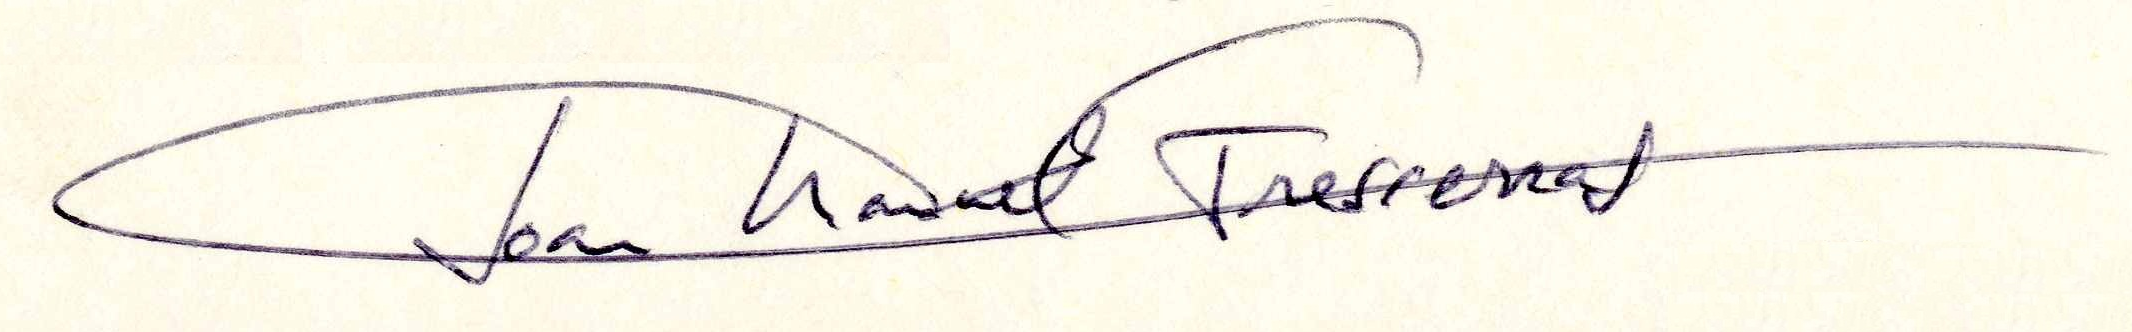 Joan Manuel Tresserras